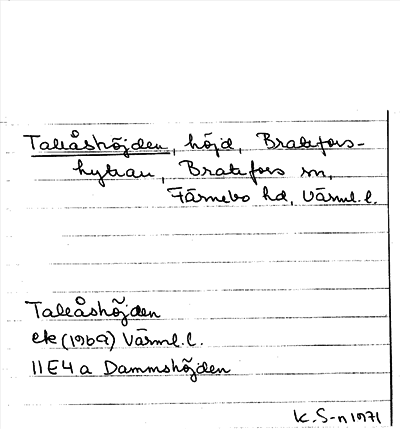 Taleåshöjden, höjd, Bratefors-
hyttan, Bratefors sn,
Färnebo hd, Värml. l.
Taleåshöjden
ek (1969) Värml. l.
11E4a Dammshöjden
K. S-n 1971